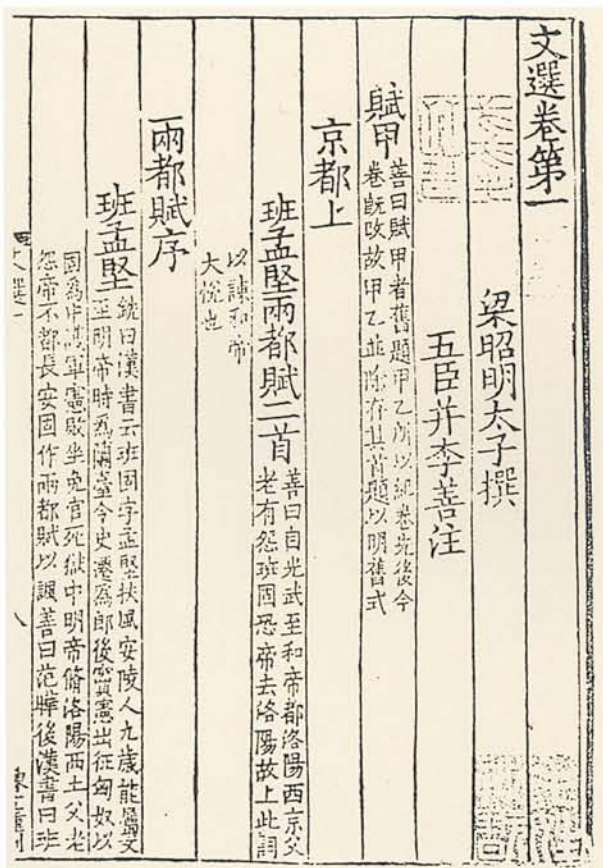 文選卷第一
梁昭明太子撰
五臣并李善注
賦甲
善曰賦甲者舊題甲乙所以紀卷先後今
卷既改故甲乙並除存其首題以明舊式
京都上
班孟堅兩都賦二首
善曰自光武至和帝都洛陽西京父
老有怨班固恐帝去洛陽故上此詞
以諫和帝
大悅也
兩都賦序
班孟堅
銑曰漢書云班固字孟堅扶風安陵人九歲能屬文
至明帝時爲蘭臺令史遷爲郎後竇憲出征匈奴以
固爲中護軍憲敗坐免官死獄中明帝脩洛陽西土父老
怨帝不都長安固作兩都賦以諷善曰范曄後漢書曰班
文選一
八